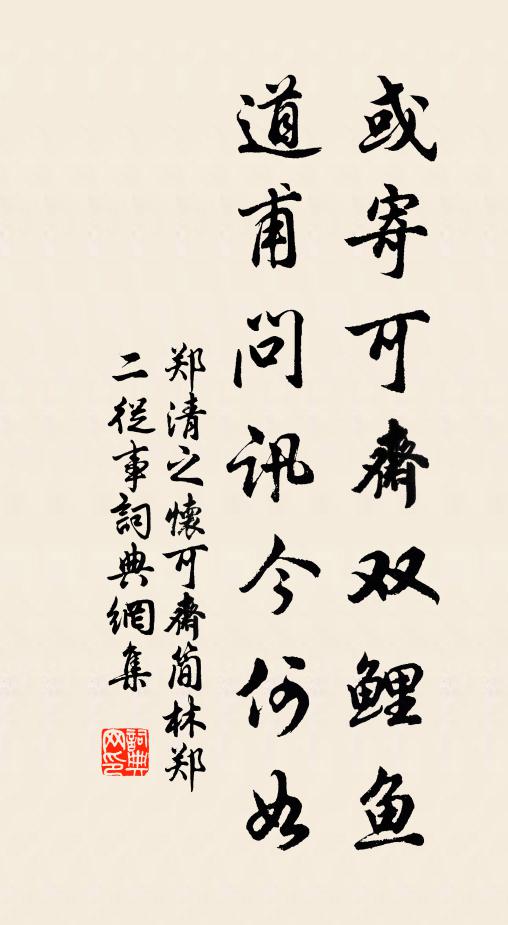 或寄可斋双鲤鱼
道甫问讯今何如
郑清之懷可斋简林郑
二從事詞典網集
詞典网印